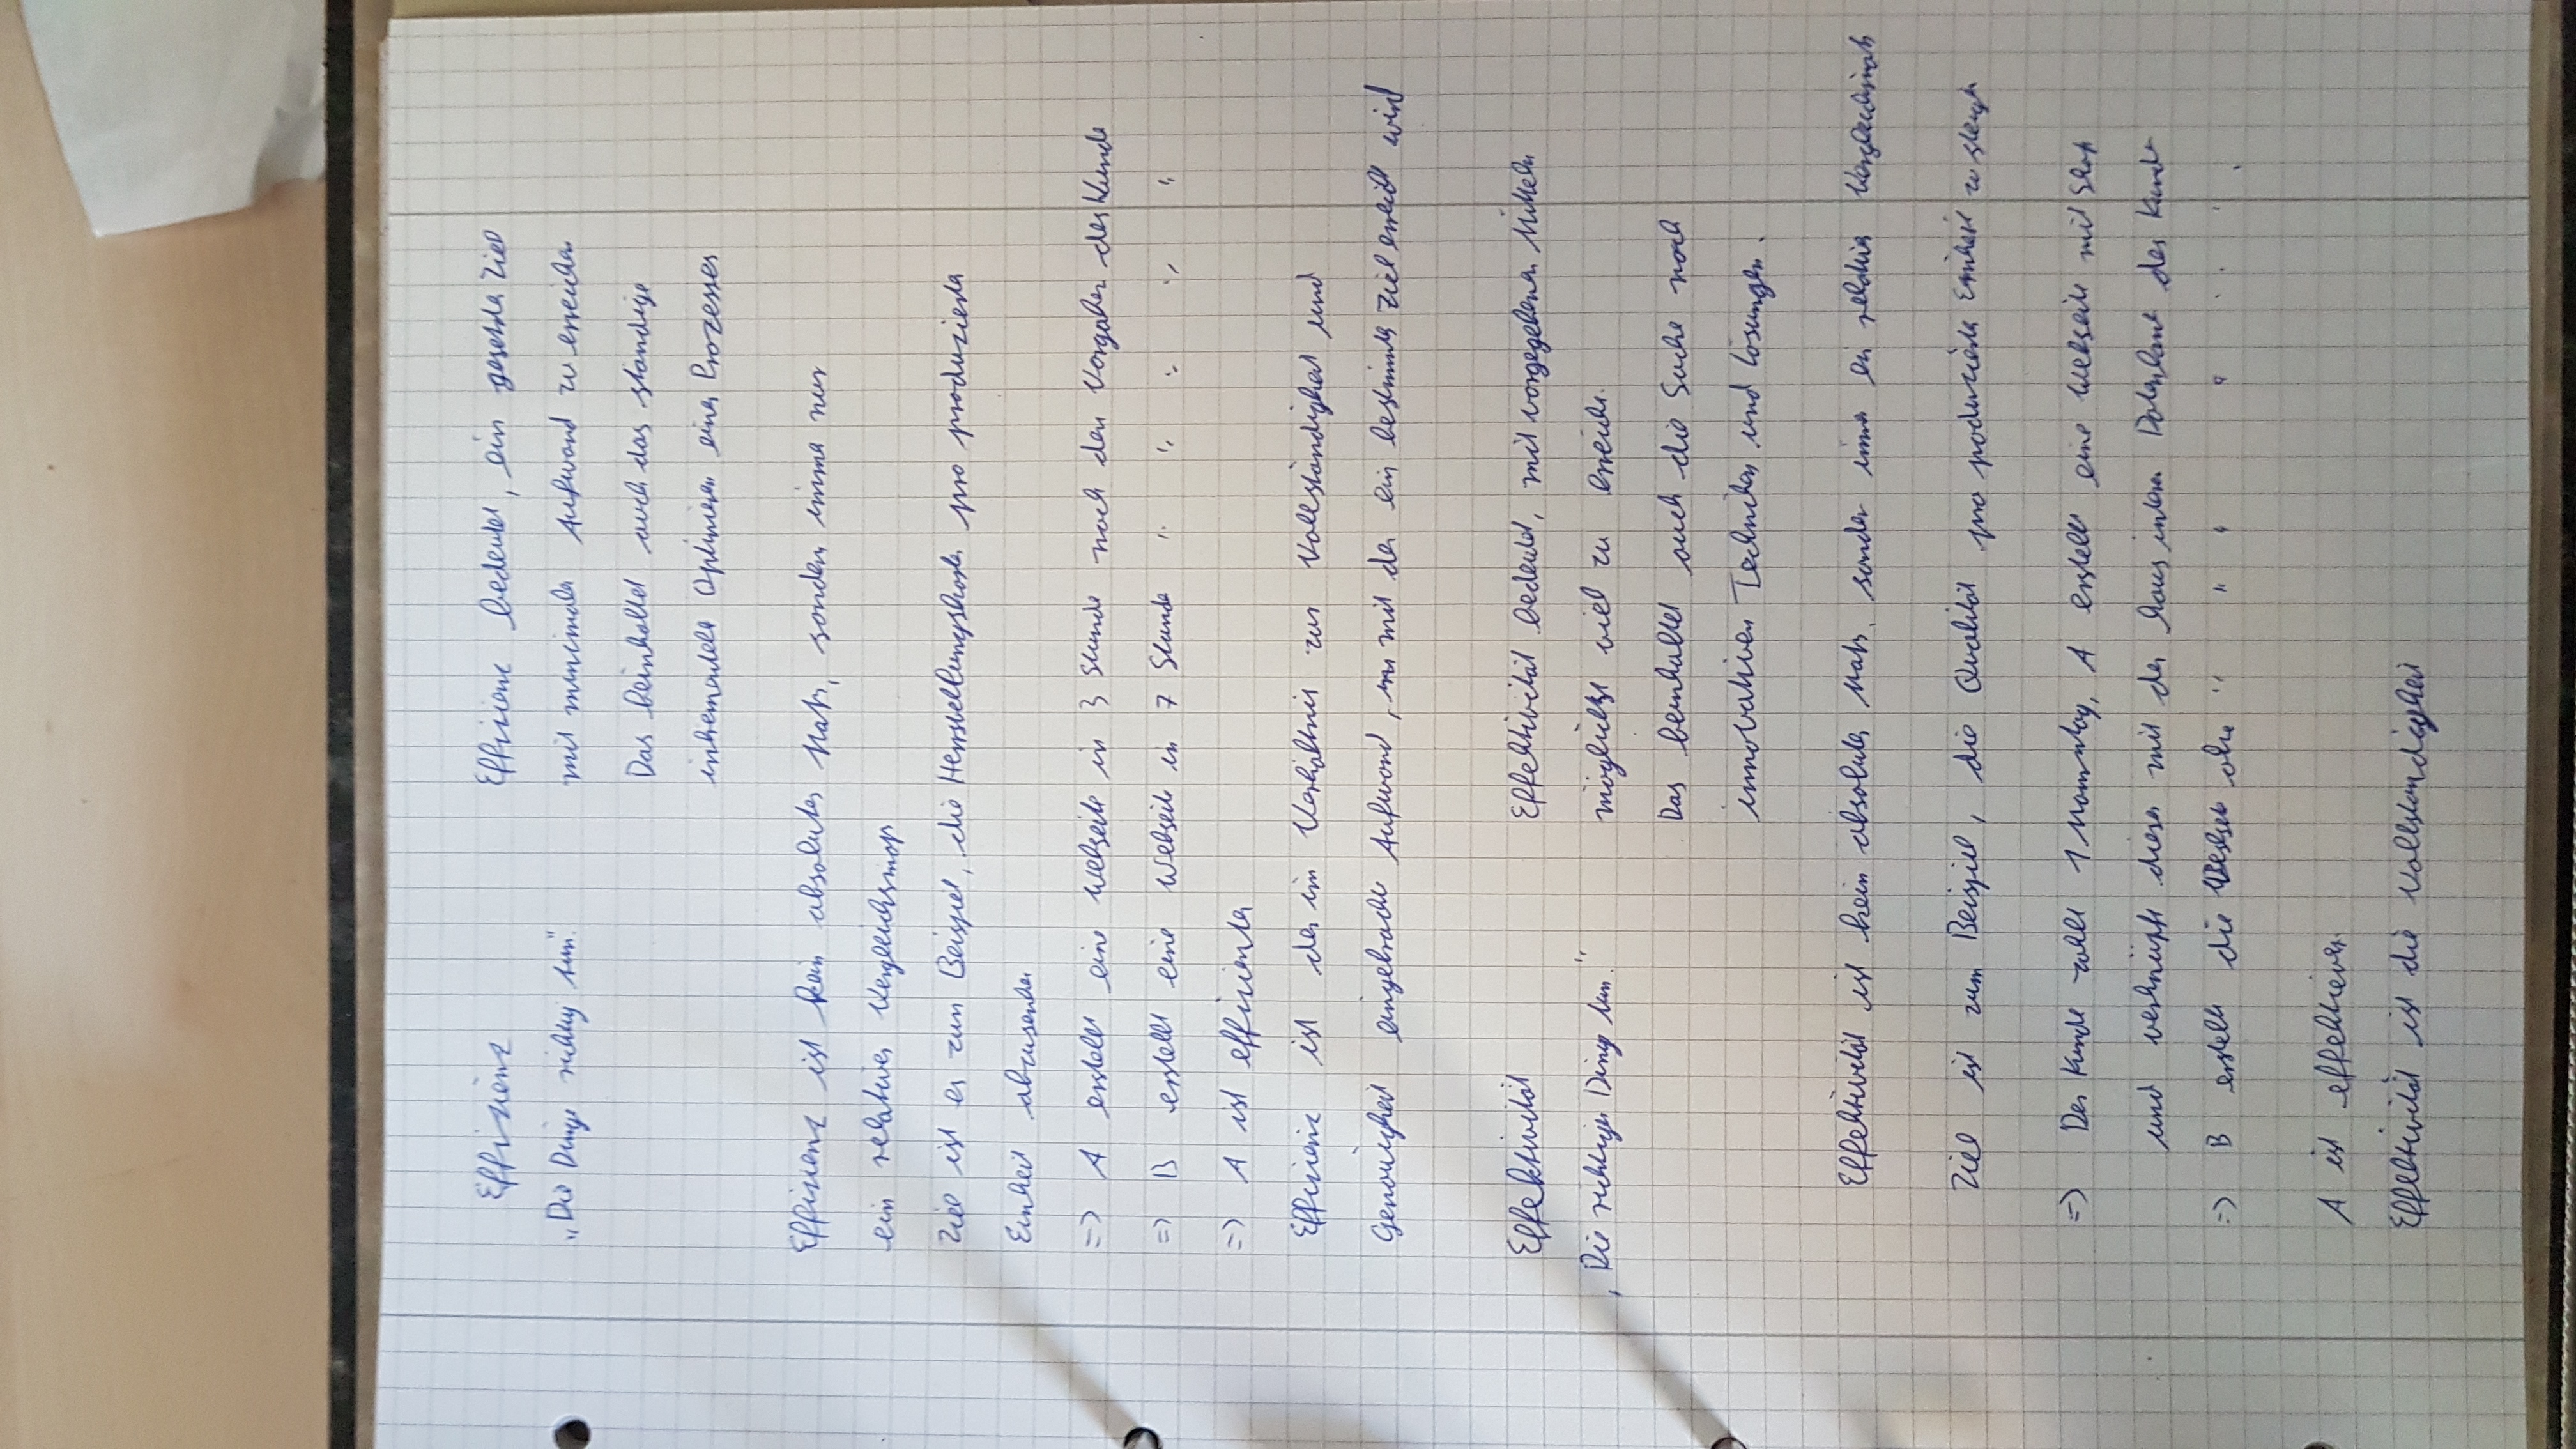 Effizienz
„Die Dinge richtig tun".
Effizienz bedeutet, ein gesetztes Ziel
mit minimalen Aufwand zu erreichen
Das beinhaltet auch das ständige
inkrementelle Optimieren eines Prozesses
Effizienz ist kein absolutes Maß, sondern immer nur
ein relatives Vergleichsmaß
Ziel ist es zum Beispiel, die Herstellungskosten pro produzierten
Einheit abzusenken
=> A erstellt eine Webseite in 3 Stunde nach den Vorgaben des Kunde
=> B erstellt eine Webseite in 7 Stunde " " " " "
=> A ist effizienter
Effizienz ist der im Verhältnis zur Vollständigkeit und
Genauigkeit eingebrachte Aufwand, mit der ein bestimmtes Ziel erreicht wird
Effektivität
„Die richtigen Dinge tun."
Effektivität bedeutet, mit vorgegebenen Mitteln
möglichst viel zu erreichen.
Das beinhaltet auch die Suche nach
innovativen Techniken und Lösungen.
Effektivität ist kein absolutes Maß, sondern immer ein relatives Vergleichsmaß
Ziel ist zum Beispiel, die Qualität pro produzierten Einheit zu steigern
=> Der Kunde zahlt 1 Manntag, A erstellt eine Webseite mit Shop
und verknüpft diesen mit der hausinternen Datenbank des Kunden
=> B erstellt die Webseite ohne " " " " " " "
A ist effektiver.
Effektivität ist die Vollständigkeit